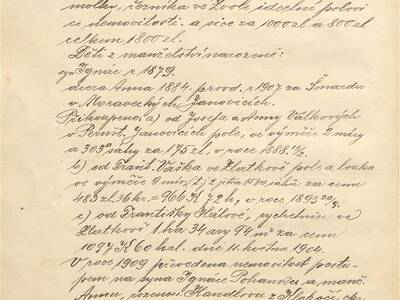 molky, řezníka ve Zvole ideelní polovi
ci nemovitosti. a sice za 1000zl a 800zl
celkem 1800zl.
Děti z manželství narozené:
syn Ignác r 1879.
dcera Anna 1884. provd. r 1907 za Šmardu
v Moraveckých Janovicích.
Přikoupeno: a) od Josefa a Anny Válkových
v Pernšt. Janovicích pole, ve výměře 2 míry
a 303□ sáhy za 175zl. v roce 1888.
b) od Frant. Vaška ve Zlatkově pole a louka
ve výměře
483zl. 36kr. = 966 K 72h, v roce 1893
c) od Františky Hálové, rychetnice ve
Zlatkově 1 ha 34 ary 94 m² za cenu
1097 K 60 hal. dne 11. května 1904.
V roce 1909 převedena nemovitost postu-
pem na syna Ignáce Pohanku a manž.
Annu, rozenou